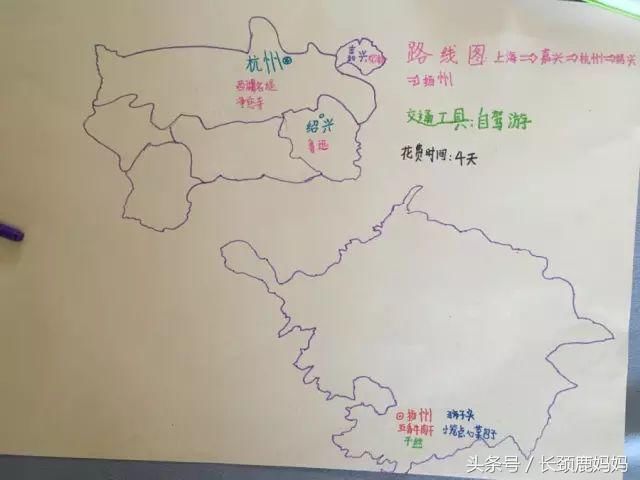 杭州
西湖名堤
净慈寺
嘉兴
绍兴
鲁迅
路线图:上海⇒嘉兴⇒杭州⇒绍兴
⇒扬州
交通工具:自驾游
花费时间:4天
扬州
五香牛肉干
干丝
狮子头
头条号/长颈鹿妈妈